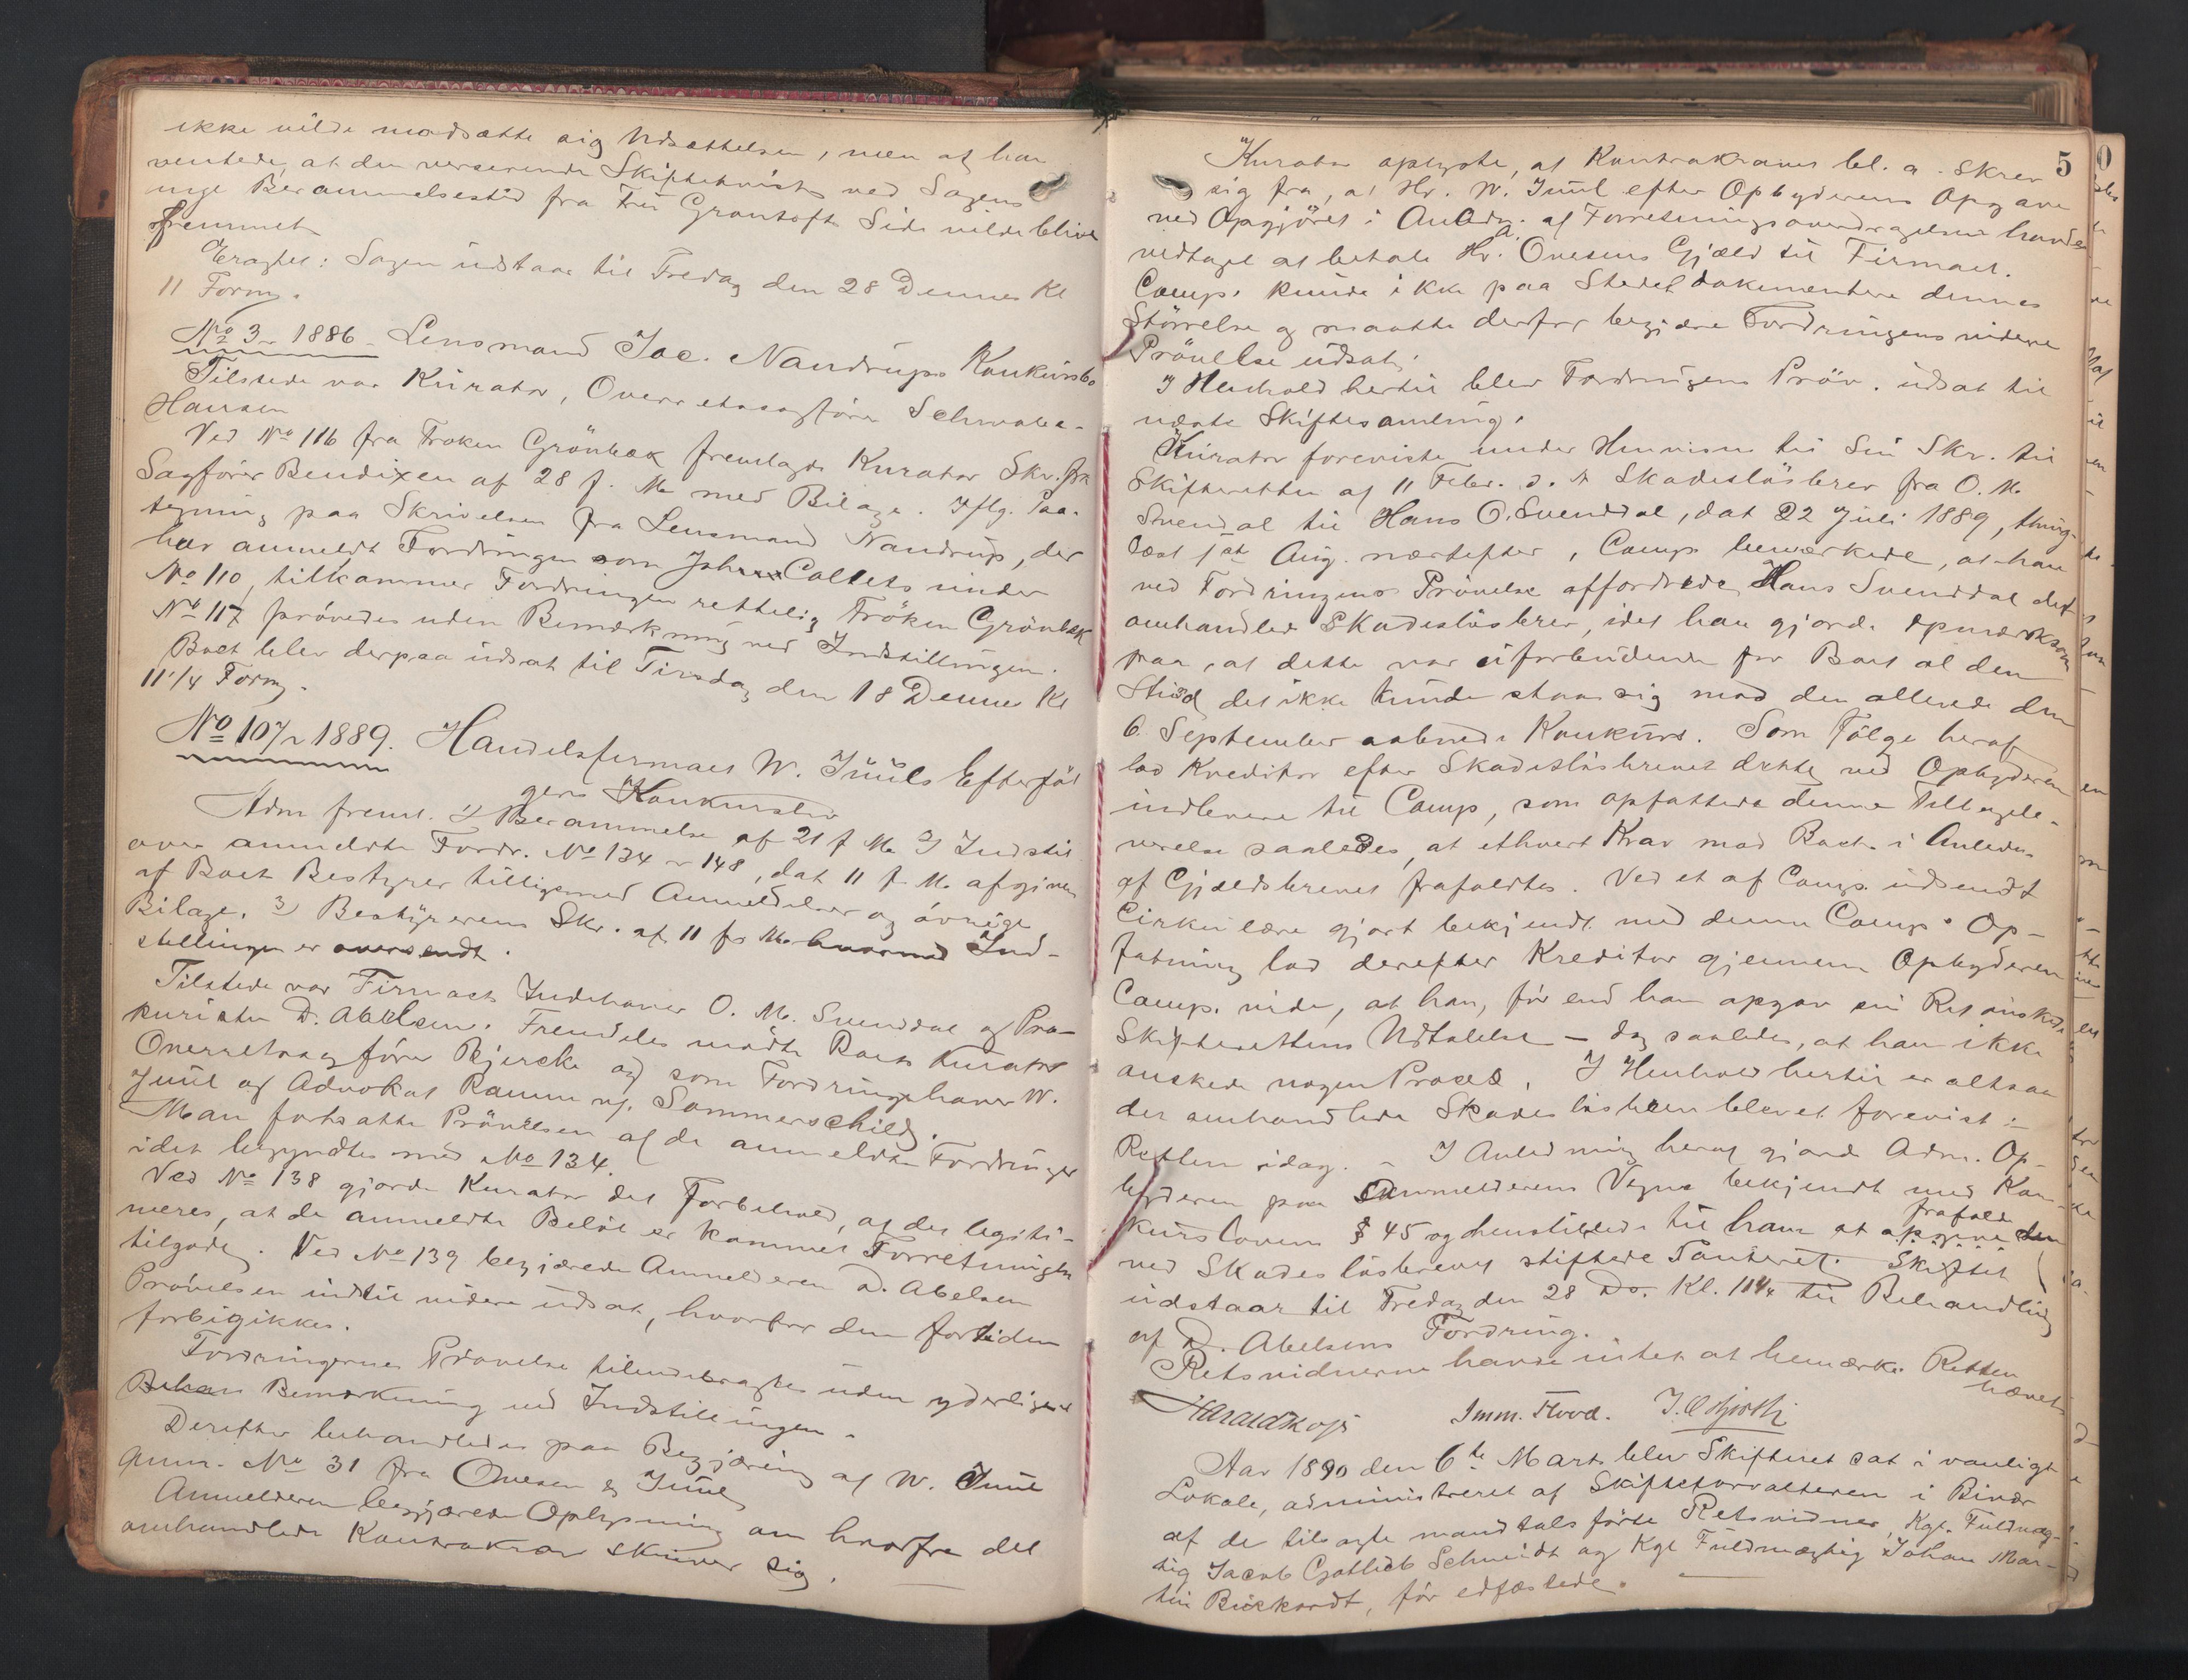 ikke vilde modsætte sig Udsættelsen, men at han
ventede, at den verserende Skiftetvist ved Sagens
nye Berammelsestid fra Fru Grøntofts Side vilde blive
fremmet
Eragtet: Sagen udstaar til Fredag den 28 Dennes Kl
11 Formg.
No 3 - 1886 - Lensmand Jac. Nandrups Konkursbo
Tilstede var Kurator, Overretssagfører Schwabe-
Hansen
Ved No 116 fra Frøken Grönbæk fremlagde Kurator Skr. fra
Sagfører Bendixen af 28 f. M. med Bilage. Iflg. Paa-
tegning paa Skrivelsen fra Lensmand Nandrup, der
har anmeldt Fordringen som John Colletts under
No 110, tilkommer Fordringen rettelig Frøken Grönbæk
No 117 prövedes uden Bemærkning ved Indstillingen.
Boet blev derpaa udsat til Tirsdag den 18 Dennes Kl
11 1/4 Formg.
No 107 - 1889. Handelsfirmaet W. Juuls Efterföl
gers Konkursbo
Adm freml. 1) Berammelse af 21 f. M. 2) Indstil
over anmeldte Fordr. No 134 - 148, dat 11 f. M. afgiven
af Boets Bestyrer tilligemed Anmeldelser og övrige
Bilage. 3) Bestyrerens Skr. af 11 f. M. hvormed Ind-
stillingen er oversendt.
Tilstede var Firmaets Indehaver O. M. Svenddal og Pro-
kuristen D. Abelsen. Fremdeles mödte Boets Kurator
Overretssagförer Bjercke og som Fordringshaver W.
Juul og Advokat Ramm vf. Sommerschild.
Man fortsatte Prövelsen af de anmeldte Fordringer
idet begyndtes med No 134.
Ved No 138 gjorde Kurator det Forbehold, at det legiti-
meres, at de anmeldte Belöb er kommet Forretningen
tilgode. Ved No 139 begjærede Anmelderen D. Abelsen
Prövelsen indtil videre udsat, hvorfor den fortiden
forbigikkes.
Fordringernes Prövelse tilendebragtes uden yderligere
Bemærkning ved Indstillingen.
Derefter behandledes paa Begjæring af W. Juul
Anm. No 31 fra Ovesen & Juul
Anmelderen begjærede Oplysning om hvorfra det
omhandlede Kontrakrav skriver sig.
5
Kurator oplyste, at Kontrakravet bl. a. skrev
sig fra, at Hr. W. Juul efter Opbyderens Opgave
ved Opgjöret i Anledn. af Forretningsoverdragelsen havde
vedtaget at betale Hr. Ovesens Gjæld til Firmaet.
Comp. kunde ikke paa Stedet dokumentere dennes
Störrelse og maatte derfor begjære Fordringens videre
Prövelse udsat.
I Henhold hertil blev Fordringens Pröv. udsat til
næste Skiftesamling.
Kurator foreviste under Henvisn til Sin Skr. til
Skifteretten af 11 Febr. d. A Skadeslösbrev fra O. M.
Svendal til Hans O. Svenddal, dat 22 Juli 1889, thing-
læst 1ste Aug. næstefter, Comp. bemærkede, at han
ved Fordringens Prövelse affordrede Hans Svenddal det
omhandlede Skadeslösbrev, idet han gjorde opmærksom
paa, at dette var uforbindende for Boet al den
Stund det ikke kunde staa sig mod den allerede den
6. September aabnede Konkurs. Som Fölge heraf
lod Kreditor efter Skadeslösbrevet dette ved Opbyderen
indlevere til Comp., som opfattede denne Tilbagele-
verelse saaledes, at ethvert Krav mod Boet i Anledn
af Gjældsbrevet frafaldtes. Ved et af Comp. udsendt
Cirkulære gjort bekjendt med denne Comp's Op-
fatning lod derefter Kreditor gjennem Opbyderen
Comp. vide, at han, för end han opgav sin Ret önskede
Skifterettens Udtalelse - dog saaledes, at han ikke
önskede nogen Proces. I Henhold hertil er altsaa
det omhandlede Skadeslösbrev blevet forevist i
Retten idag. - I Anledning heraf gjorde Adm. Op-
byderen paa Anmelderens Vegne bekjendt med Kon-
kurslovens § 45 og henstillede til ham at opgive den
frafalde
ved Skadeslösbrevet stiftede Panteret. Skiftet
udstaar til Fredag den 28 Ds. Kl. 11 1/4 til Behandling
af D. Abelsens Fordring.
Retsvidnerne havde intet at bemærke. Retten
hævet.
Imm. Flood.
Aar 1890 den 6te Marts blev Skifteret sat i vanligt
Lokale, administreret af Skifteforvalteren i Bivær
af de tilsagte mandtalsförte Retsvidner, Kgl. Fuldmæg-
tig Jacob Gotlieb Schmidt og Kgl Fuldmægtig Johan Mar-
tin Burkardt, för edfæstede.